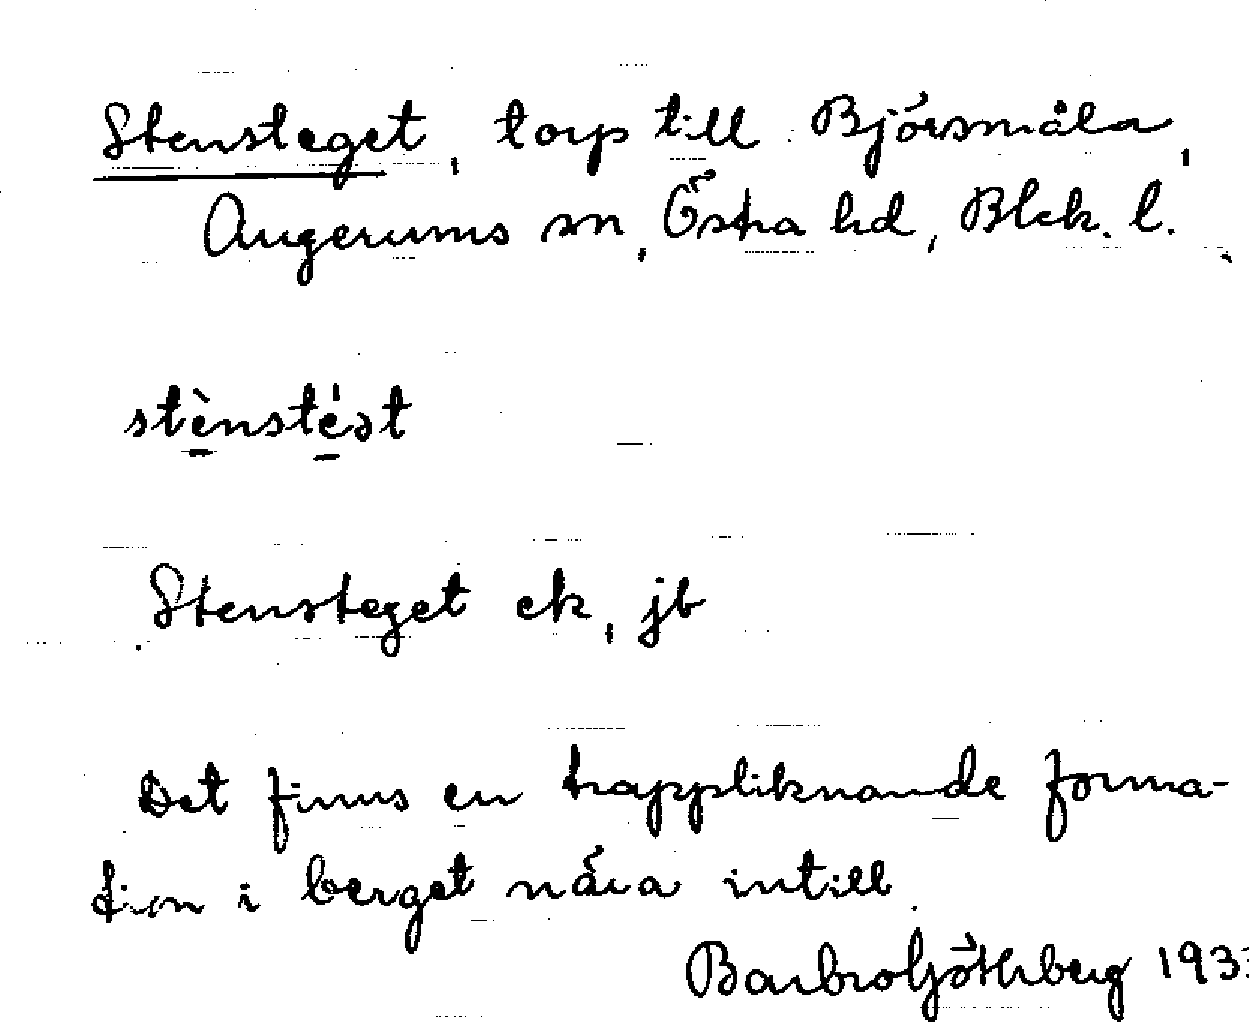 Stensteget, torp till Björsmåla,
Augerums sn, Östra hd, Blek. l.
stènste̍ət
Stensteget ek, jb
Det finns en trappliknande forma-
tion i berget nära intill.
Barbro Göthberg